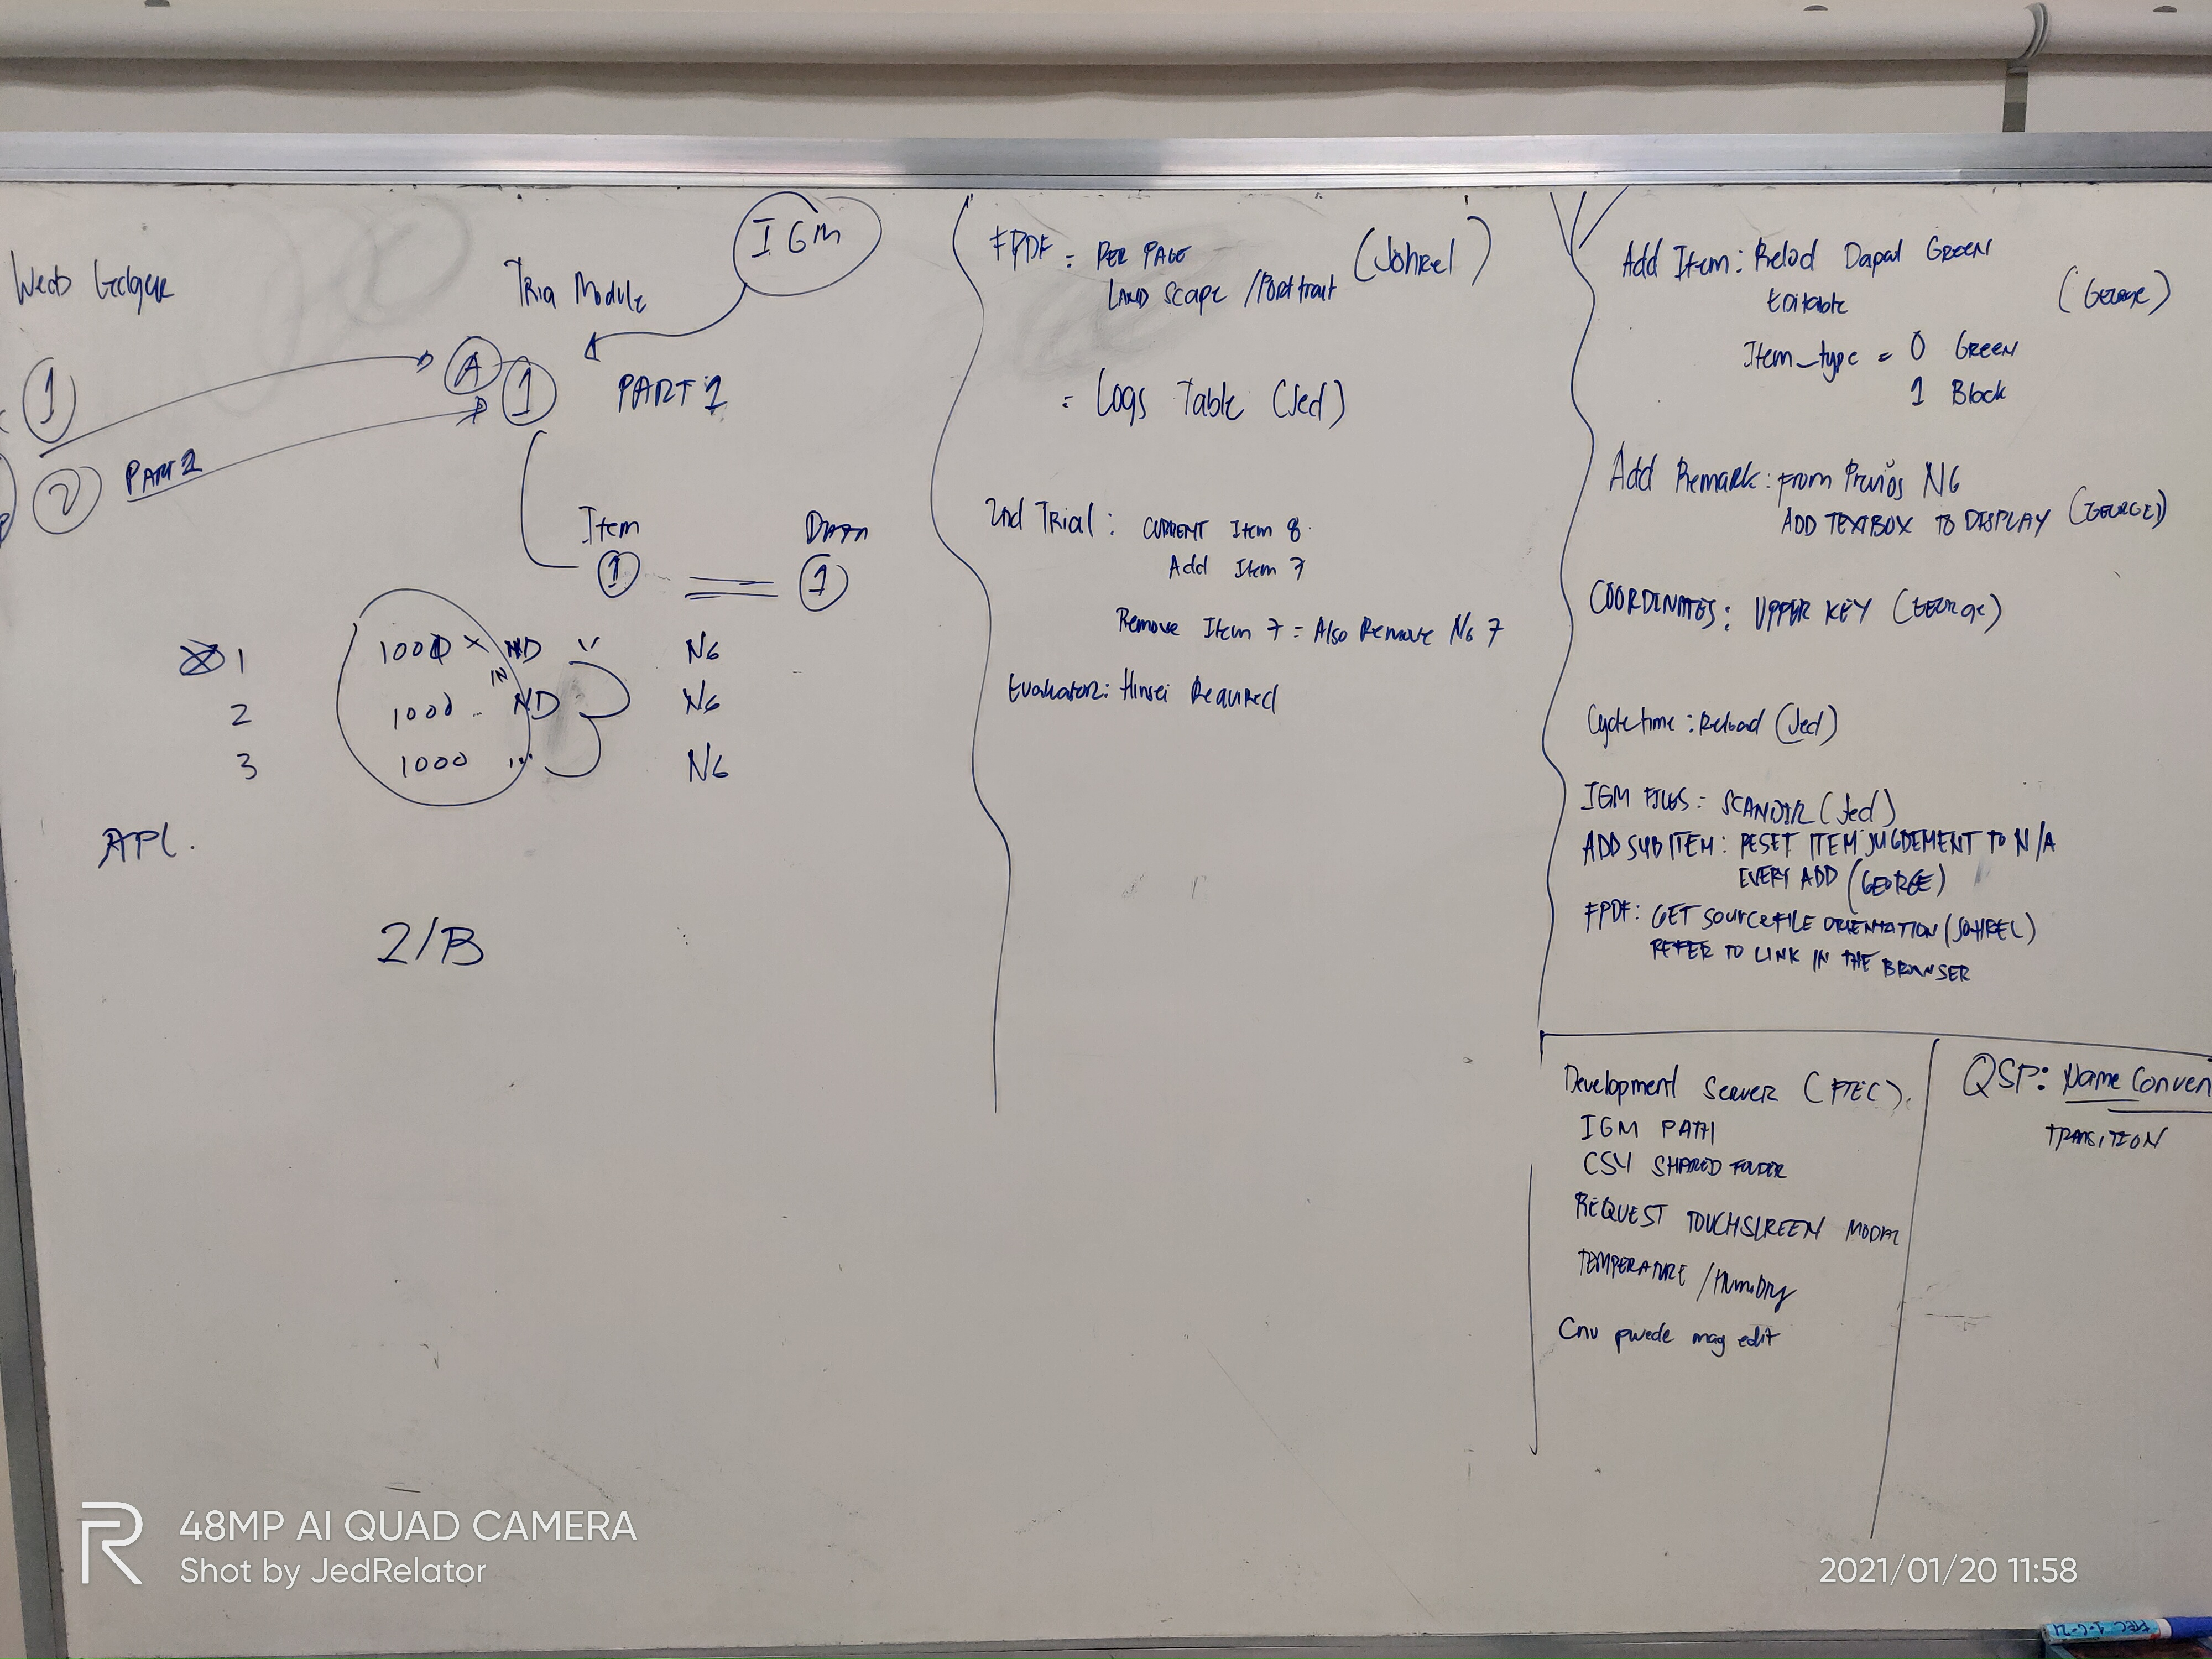 Web Ledger
Tria Module
IGM
1
A 1
PART 1
2
PART 2
Item
Data
1
1
1
1000 x
ND
"
NG
IN
2
1000 ..
ND
NG
3
1000 ...
NG
API.
2/B
FPDF = PER PAGE (Johrel)
LAND Scape / Portrait
= Logs Table (Jed)
2nd Trial : CURRENT Item 8.
Add Item 7
Remove Item 7 = Also Remove NG 7
Evaluator: Hinsei Required
Add Item : Relod Dapat GREEN
Editable
(George)
Item_type = 0 GREEN
1 Black
Add Remark : From NG
ADD TEXTBOX TO DISPLAY (GEORGE)
COORDINATES : UPPER KEY (George)
Cycle time : Reload (Jed)
IGM FILES = SCANDIR (Jed)
ADD SUB ITEM : RESET ITEM JUGDEMENT TO N/A
EVERY ADD (GEORGE)
FPDF : GET SOURCEFILE ORIENTATION (JOHREL)
REFER TO LINK IN THE BROWSER
Development Server (FTEC).
IGM PATH
CSV SHARED FOLDER
REQUEST TOUCHSCREEN
TEMPERATURE / Humidity
pwede mag edit
QSP: Name Conven
TRANSITION
48MP AI QUAD CAMERA
Shot by JedRelator
2021/01/20 11:58
FTEC 1-6-21